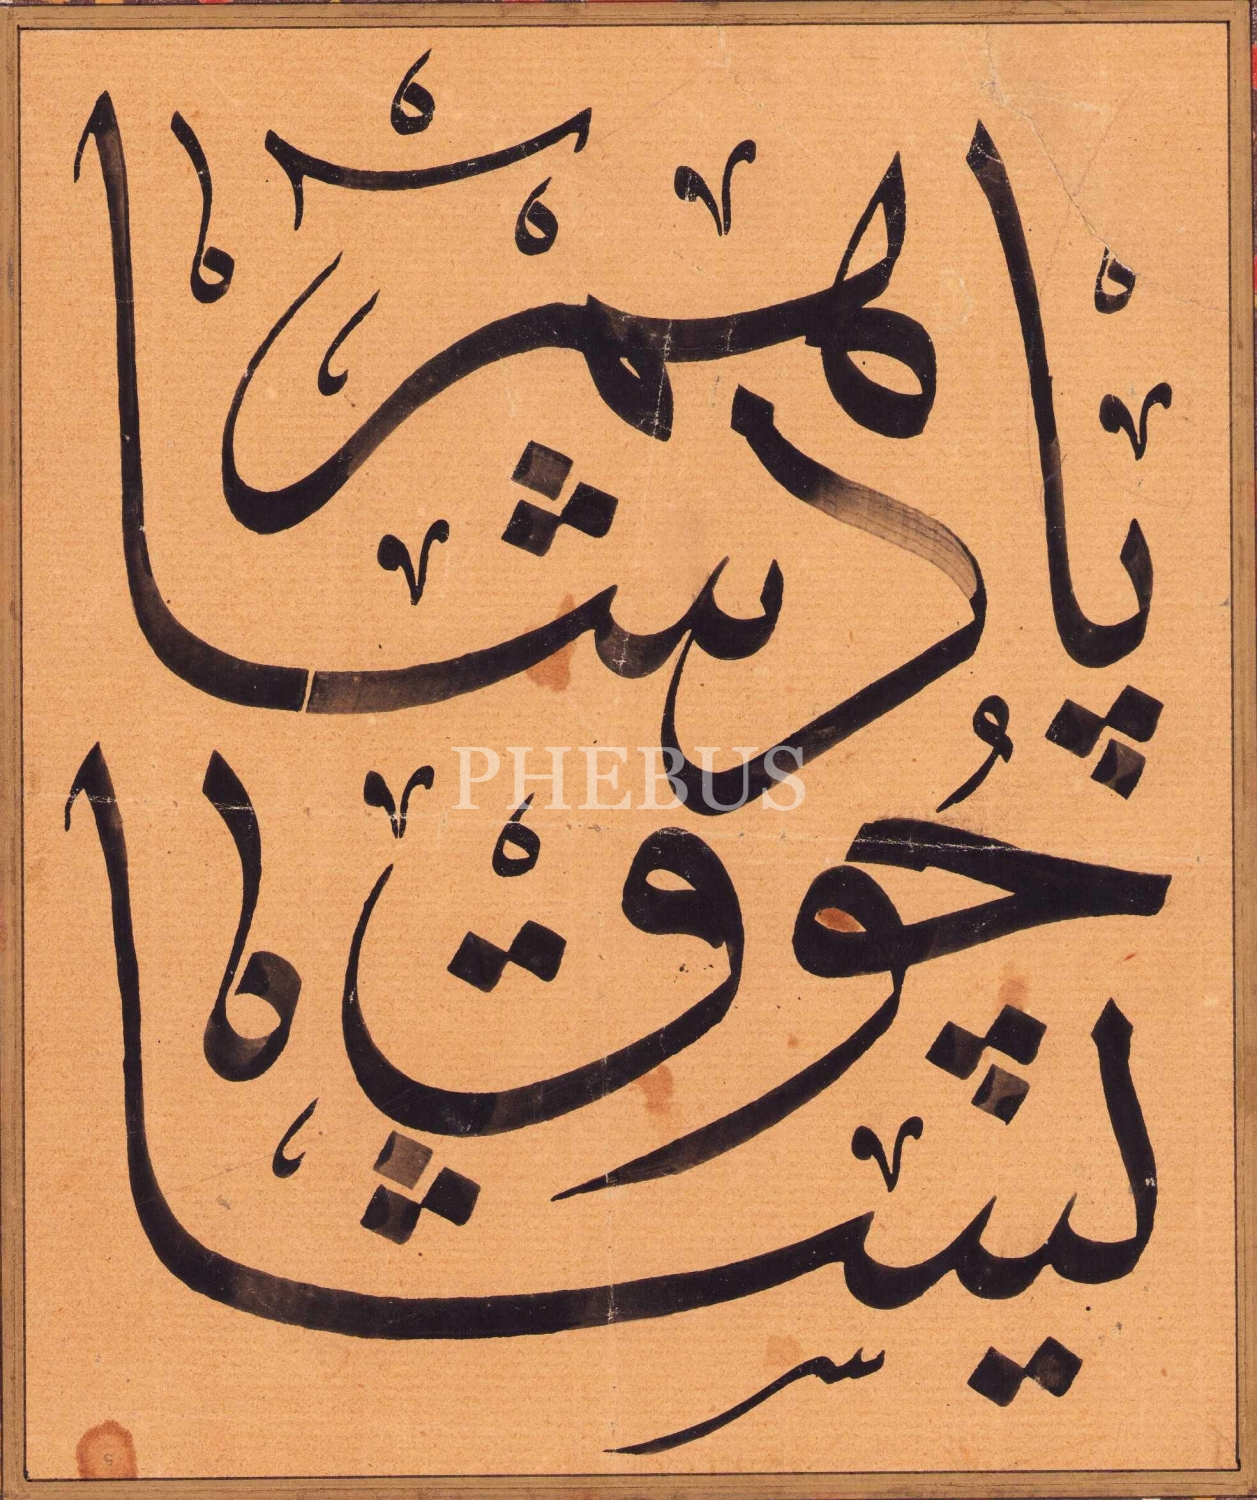 پادشاهمز
چوق یشا
PHEBUS